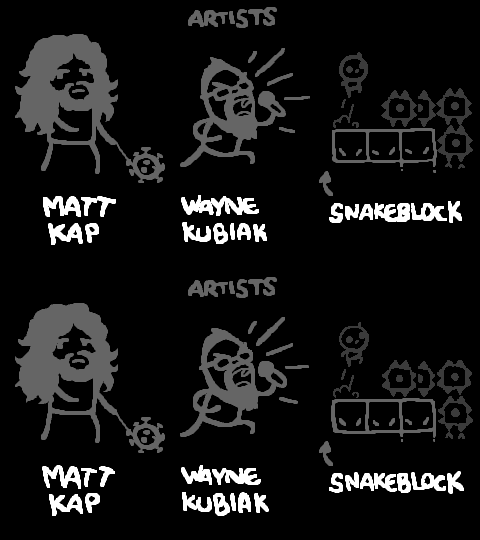 ARTISTS
MATT KAP
WAYNE KUBIAK
SNAKEBLOCK
ARTISTS
MATT KAP
WAYNE KUBIAK
SNAKEBLOCK